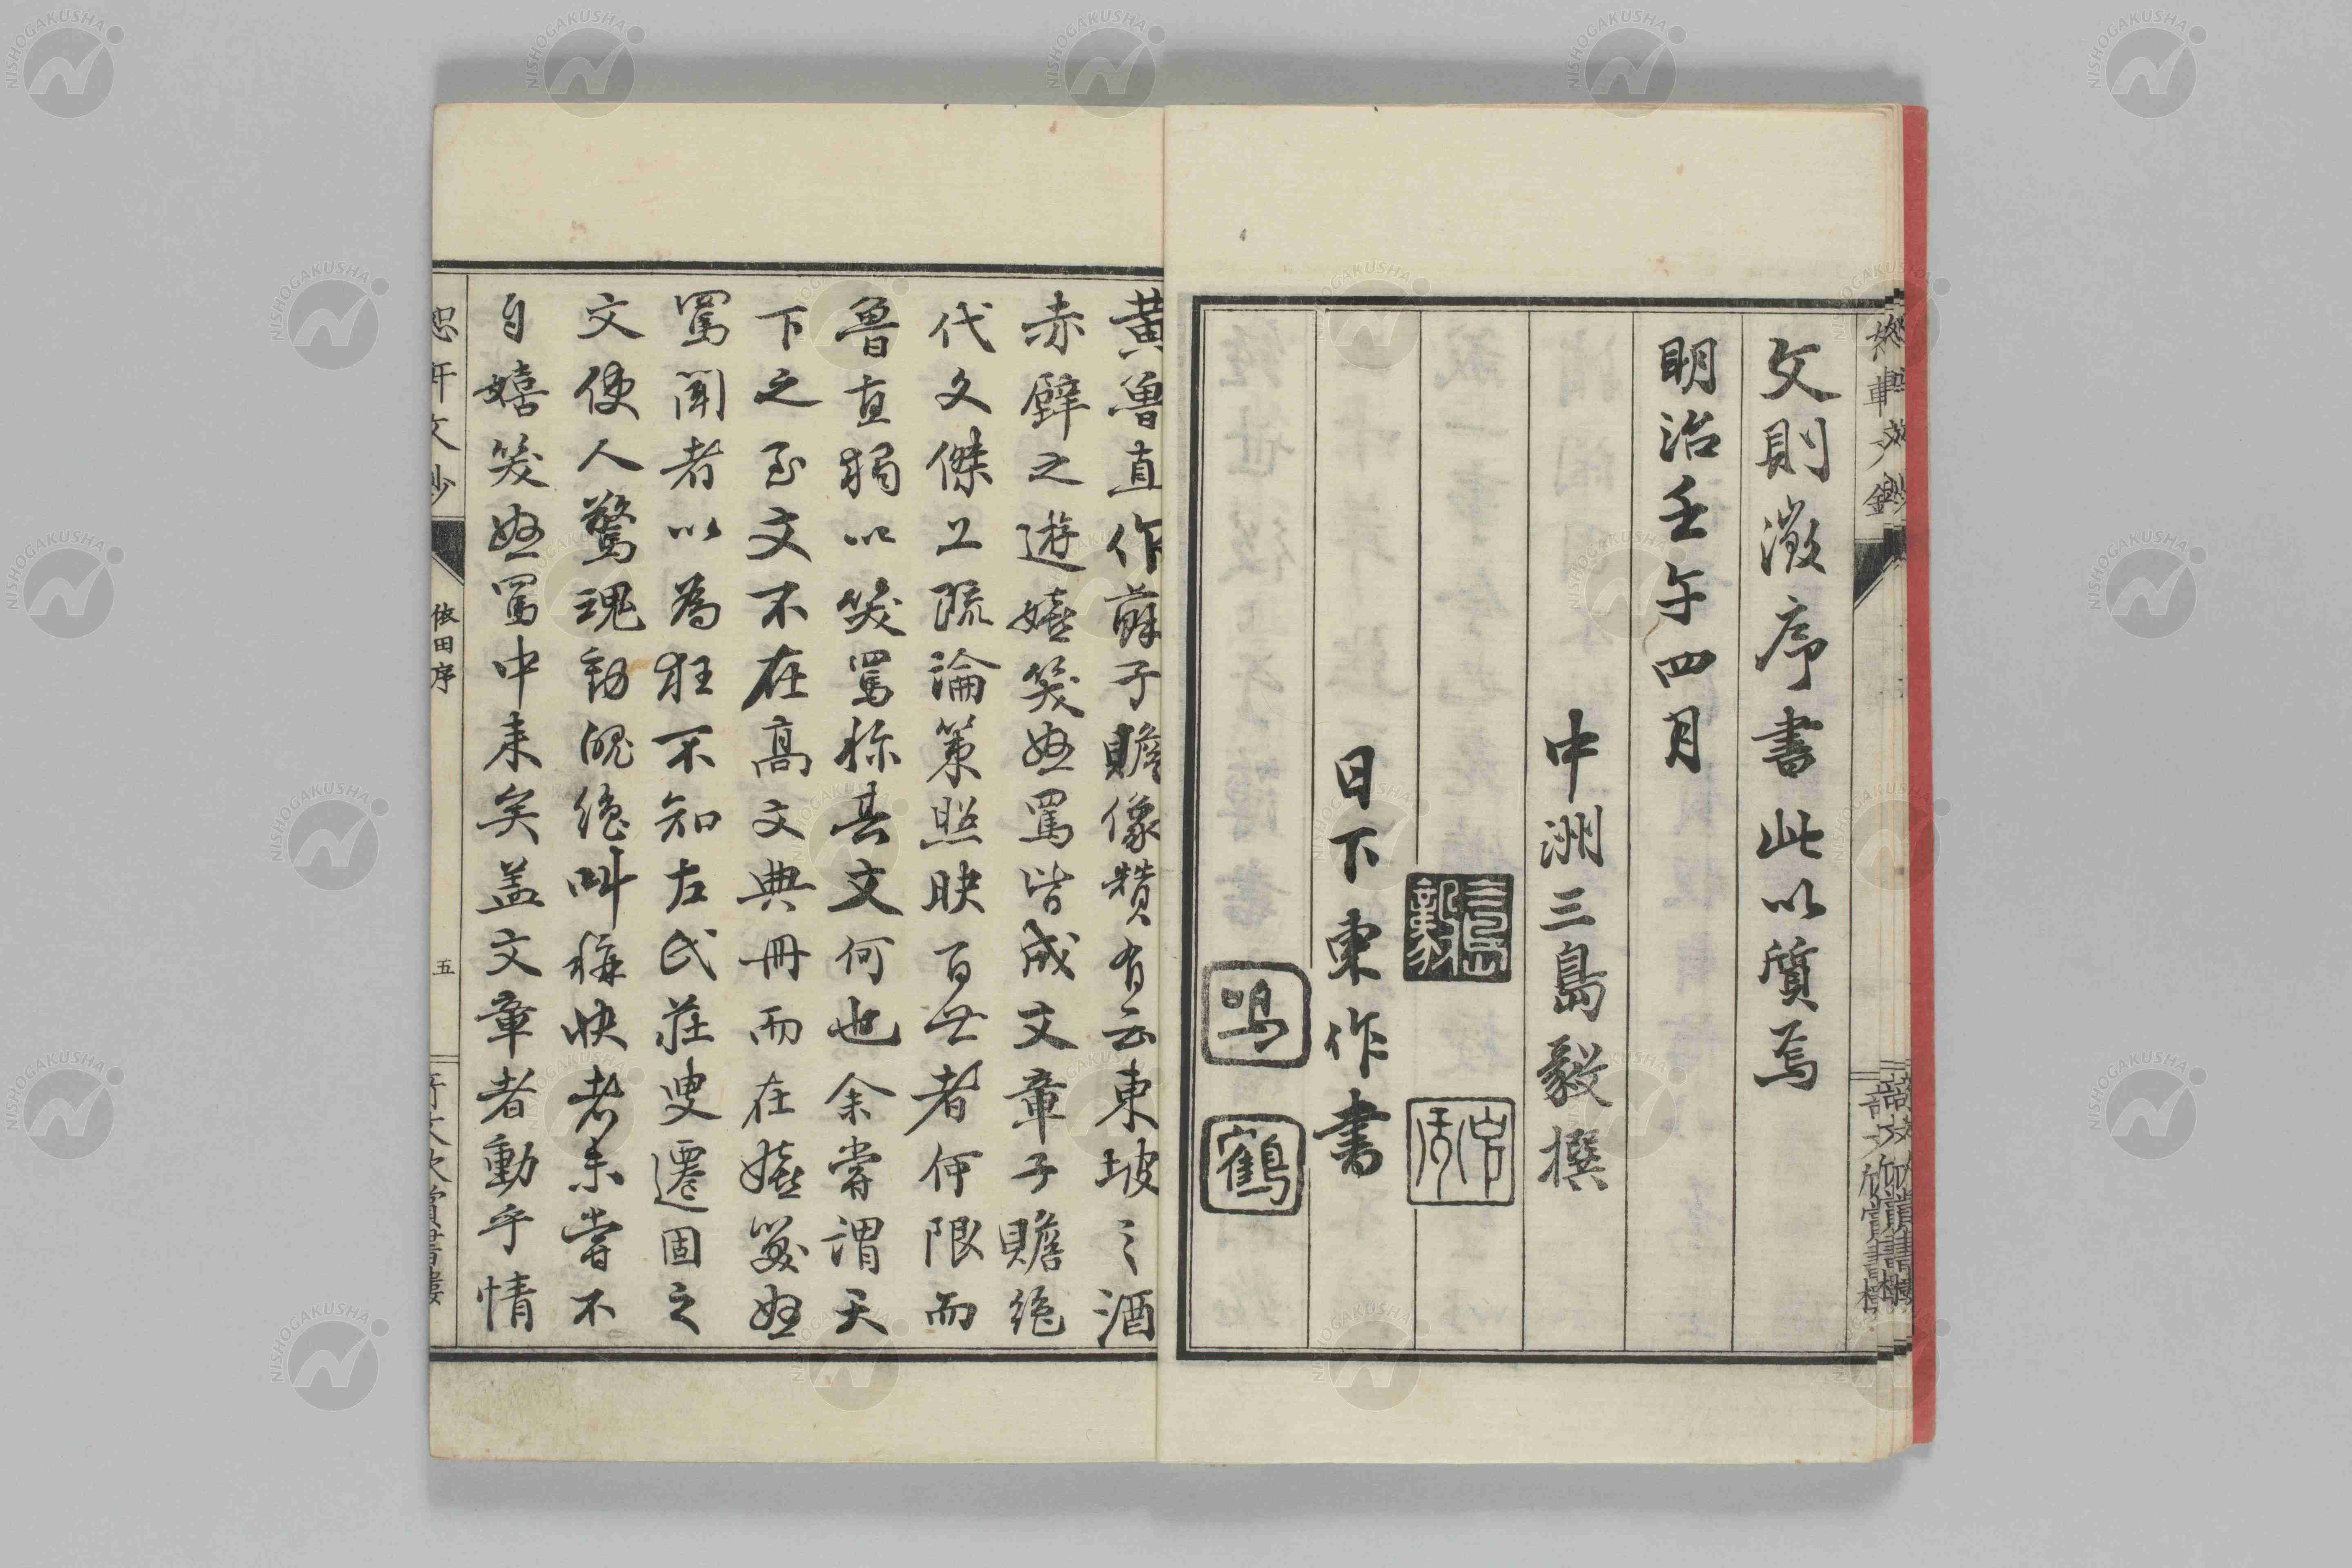 文則徴序書此以質焉
明治壬午四月
中洲三島毅撰
日下東作書
鳴
鶴
黄魯直作蘇子瞻像賛有云東坡之酒
赤壁之遊嬉笑怒罵皆成文章子瞻絶
代文傑上疏論策照映百世者何限而
魯直獨以笑罵称其文何也余嘗謂天
下之至文不在高文典冊而在嬉笑怒
罵聞者以為狂不知左氏荘叟遷固之
文使人驚魂動魄絶叫称快者未嘗不
自嬉笑怒罵中来矣盖文章者動乎情
依田序
五
NISHOGAKUSHA